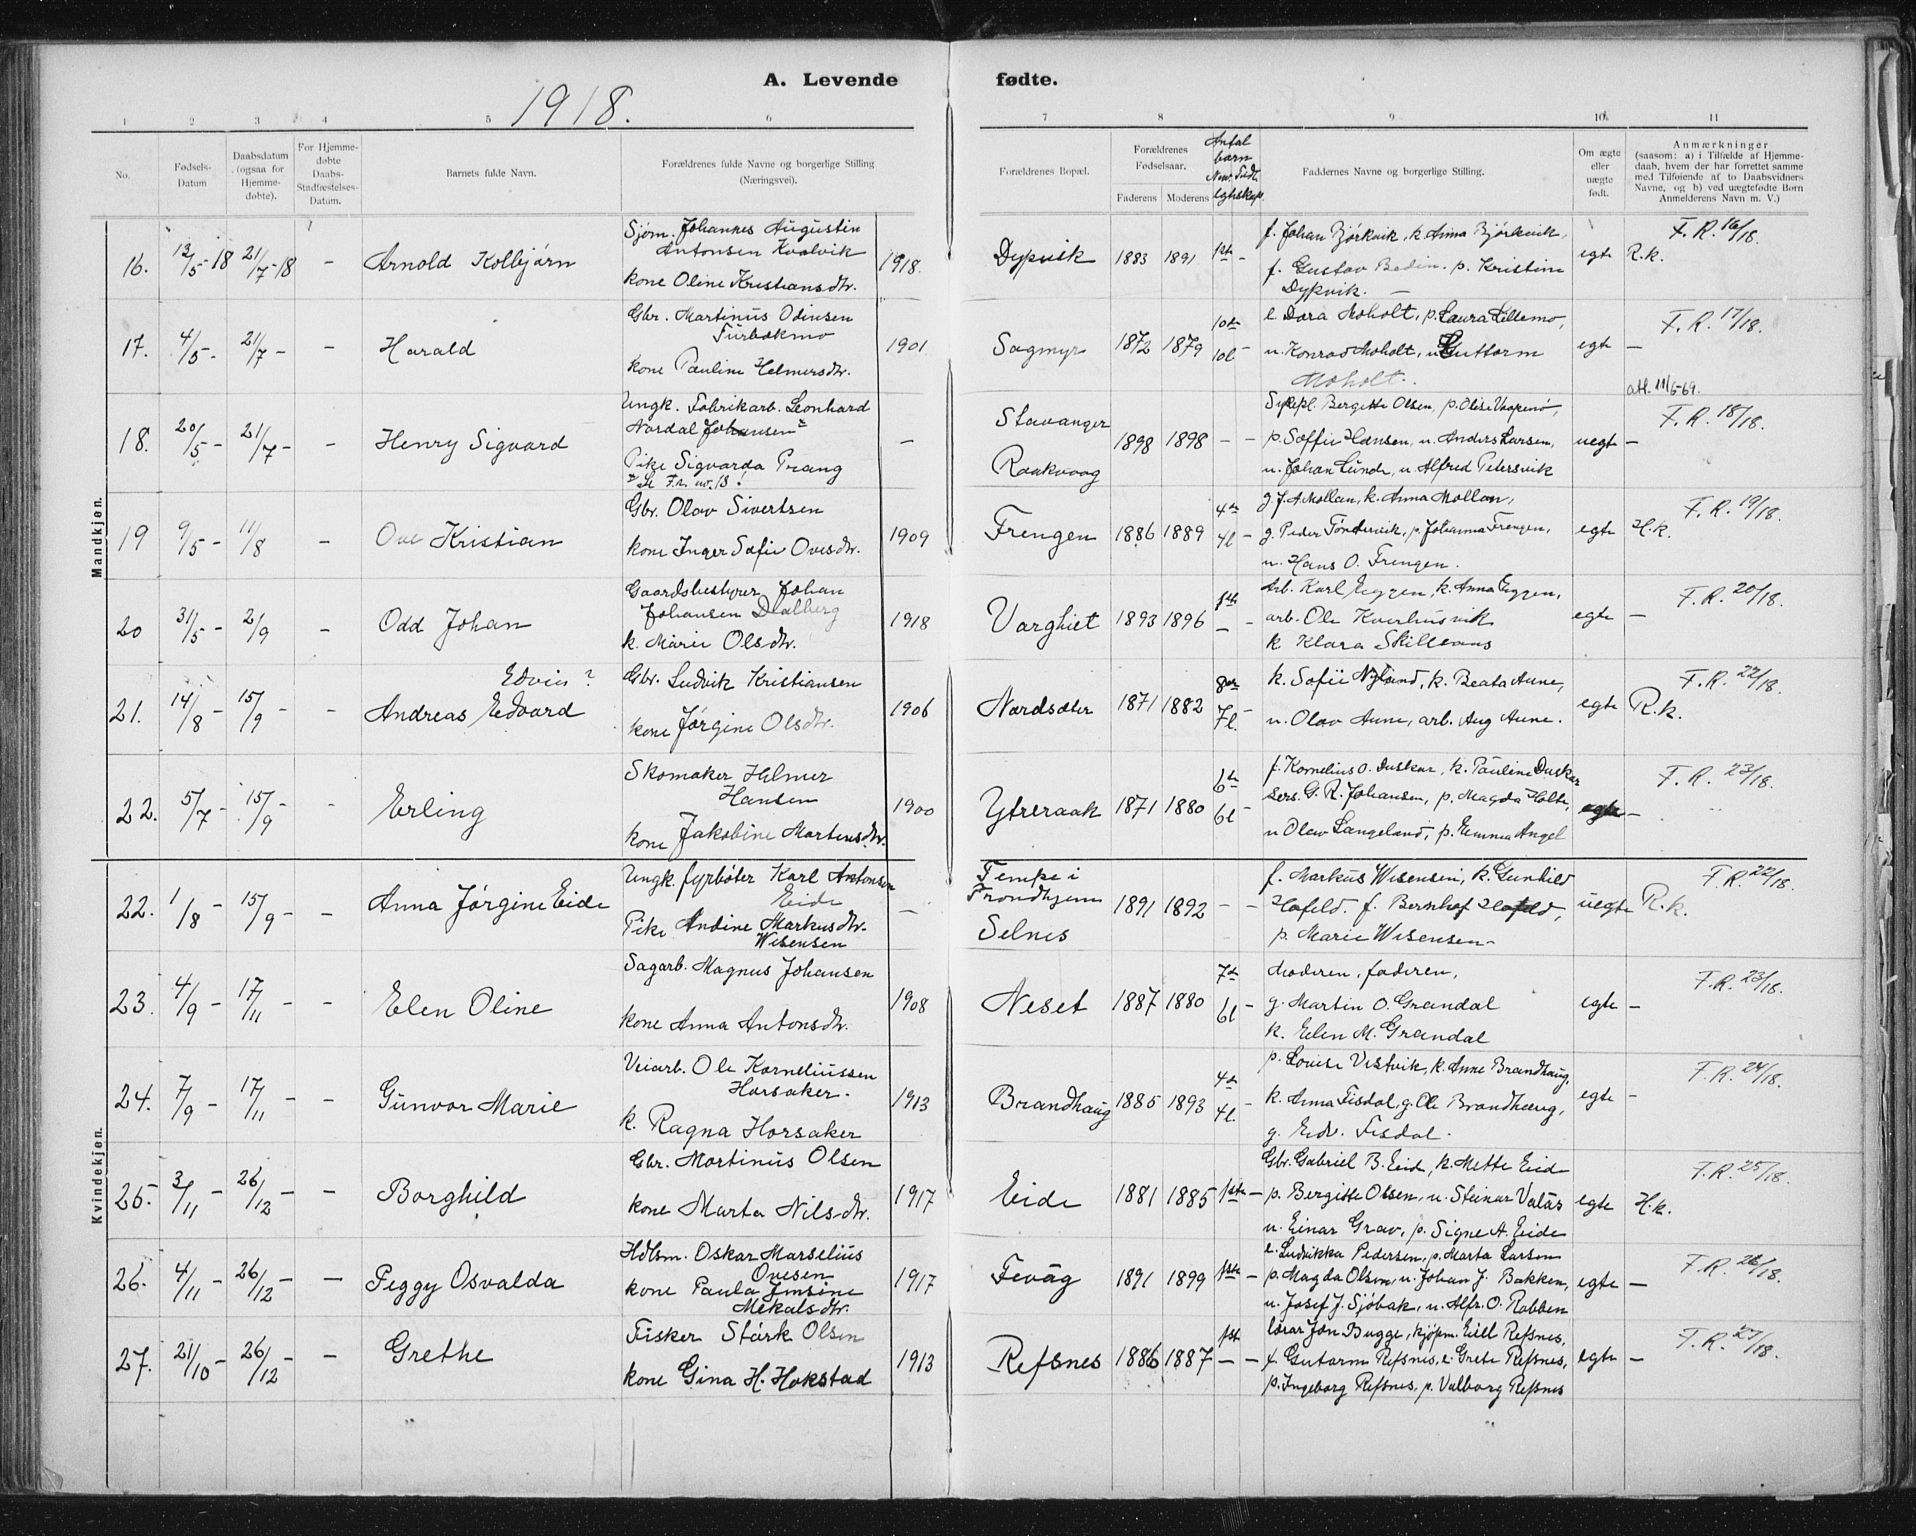 A. Levende fødte.
1918.
1 2 3 4 5 6 7 8 9 10 11
No.
Fødsels-Datum
Daabsdatum (ogsaa for Hjemmedøbte).
For Hjemmedøbte Daabs-Stadfæstelses-Datum.
Barnets fulde Navn.
Forældrenes fulde Navne og borgerlige Stilling (Næringsvei).
Forældrenes Bopæl.
Forældrenes Fødselsaar.
Faderens Moderens
Antal barn
Faddernes Navne og borgerlige Stilling.
Om ægte eller uægte født.
Anmærkninger
(saasom: a) i Tilfælde af Hjemmedaab, hvem der har forrettet samme med Tilføiende af to Daabsvidners Navne, og b) ved uægtefødte Børn Anmelderens Navn m. V.)
Mandkjøn.
16. 13/5-18 21/7-18 – Arnold Kolbjørn
Sjøm. Johannes Augustin
Antonsen Kvalvik
kone Oline Kristiansdtr.
1918. Dypvik 1883 1891 1ste –
f. Johan Bjørkvik, k. Anna Bjørkvik,
f. Gustav Bedin. p. Kristine
Dypvik. –
egte R.k. F.R. 16/18.
17. 4/5 – 21/7 – – Harald
Gbr. Martinus Odinsen
Turbekmo
kone Pauline Helmersdtr.
1901 Sagmyr 1872 1879 10de 10l –
e. Dora Moholt, p. Laura Lillemo,
u. Konrad Moholt, u. Guttorm
Moholt.
egte – F.R. 17/18.
att. 11/6-69.
18. 20/5 – 21/7 – – Henry Sigvard
Ungk. Fabrikarb. Leonhard
Nordal Johansen
Pike Sigvarda Prang
– Stavanger
Raakvaag
1898 1898 – –
Sykepl. Bergitte Olsen, p. Olise Vaapenø,
p. Soffie Hansen, u. Anders Larsen,
u. Johan Lunde, u. Alfred Petersvik
uegte – F.R. 18/18.
19 9/5 – 11/8 – Ove Kristian
Gbr. Olav Sivertsen
kone Inger Sofie Ovesdtr.
1909 Frengen 1886 1889 4de 4l –
g. J. A. Mollan, k. Anna Mollan,
g. Peder Tøndervik, p. Johanna Frengen,
u. Hans O. Frengen.
egte H.k. F.R. 19/18.
20 31/5 – 2/9 – Odd Johan
Gaardsbestyrer Johan
Johansen Dalberg
k. Marie Olsdtr.
1918 Varghiet 1893 1896 1ste –
Arb. Karl Eggen, k. Anna Eggen,
arb. Ole Kverhusvik
k Klara Skilleaas
egte – F.R. 20/18.
21. 14/8 – 15/9 – – Andreas Edvard
Edvin?
Gbr. Ludvik Kristiansen
kone Jørgine Olsdtr.
1906 Nordsæter 1871 1882 8de 7l. –
k. Sofie Nyland, k. Beata Aune,
u. Olav Aune, arb. Aug Aune.
egte R.k. F.R. 22/18.
22. 5/7 – 15/9 – – Erling
Skomaker Helmer
Hansen
kone Jakobine Martensdtr.
1900 Ytreraak 1871 1880 6te 6l –
f. Kornelius O. Duskar, k. Pauline Duskar
Sers. G. R. Johansen, p. Magda Holte,
u Olav Langeland, p. Emma Angel
egte – F.R. 23/18.
Kvindekjøn.
22. 1/8 – 15/9 – – Anna Jørgine Eide
Ungk. fyrbøter Karl Antonsen
Eide
Pike Andine Markusdtr.
Wesensen
– Tempe i
Trondhjem
Selnes
1891 1892 – –
f. Markus Wesensen, k. Gunhild
Hofeld. f. Bernhof Hofeld,
p. Marie Wesensen –
uegte R.k. F.R. 22/18.
23. 4/9 – 17/11 – – Elen Oline
Sagarb. Magnus Johansen
kone Anna Antonsdtr.
1908 Neset 1887 1880 7de 6l –
Moderen, faderen,
g. Martin O. Grandal
k. Elen M. Grandal
egte – F.R. 23/18.
24. 7/9 – 17/11 – – Gunvor Marie
Veiarb. Ole Korneliussen
Horsaker.
k. Ragna Horsaker
1913 Brandhaug 1885 1893 4de 4l.
p. Louise Vestvik, k. Anne Brandhaug,
k. Anna Fisdal, g. Ole Brandhaug,
g. Edv. Fisdal.
egte – F.R. 24/18.
25. 3/11 – 26/12 – – Borghild
Gbr. Martinus Olsen
kone Marta Nilsdtr.
1917 Eide 1881 1885 1ste –
Gbr. Gabriel B. Eid, k. Mette Eide
p. Bergitte Olsen, u. Steinar Valås
u. Einar Grav, p. Signe A. Eide
egte H.k. F.R. 25/18.
26. 4/11 – 26/12 – – Peggy Osvalda
Hdlsm. Oskar Marselius
Ovesen
kone Paula Jensine
Mekalsdtr.
1917 Fevåg 1891 1899 1ste –
e. Ludvikka Pedersen, p. Marta Larsen
p. Magda Olsen, u. Johan J. Bakken,
u. Josef J. Sjøbak, u. Alfr. O. Rabben
egte – F.R. 26/18.
27. 21/10 – 26/12 – – Grethe
Fisker Stårk Olsen
kone Gina H. Hokstad
1913 Refsnes 1886 1887 1ste – –
lærar Jon Bugge, kjøpm. Eill Refsnes,
f. Gutorm Refsnes, e. Grete Refsnes,
p. Ingeborg Refsnes, p. Valborg Refsnes
egte – F.R. 27/18.